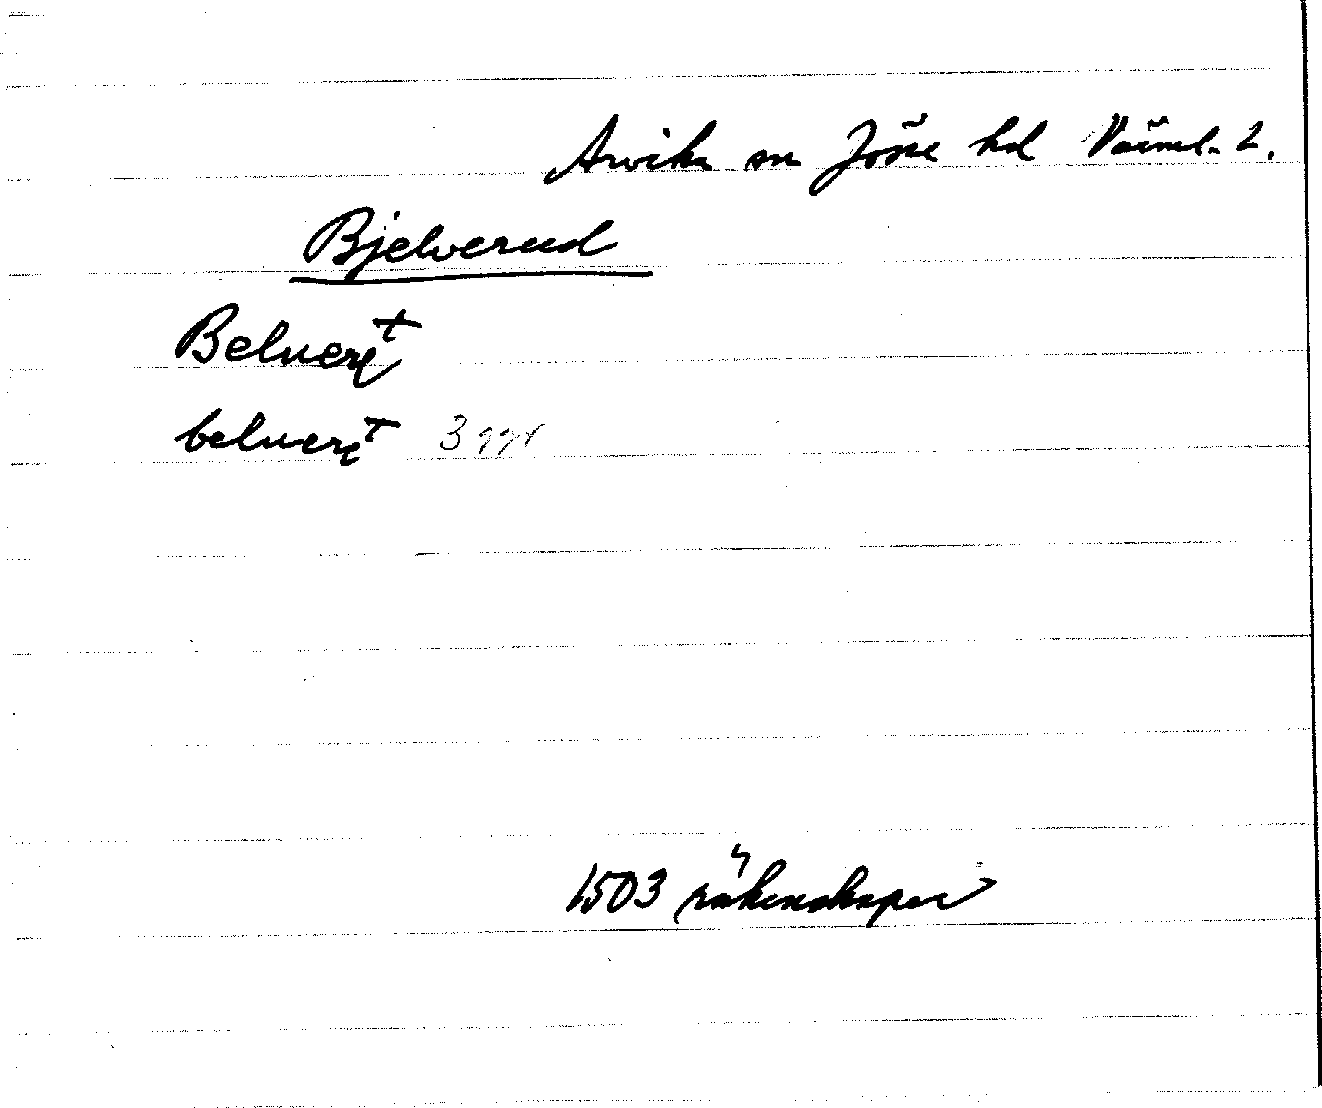 Arvika sn Jösse hd Värml. l.
Bjelverud
Belueret
belueret 3 ggr
1503 räkenskaper